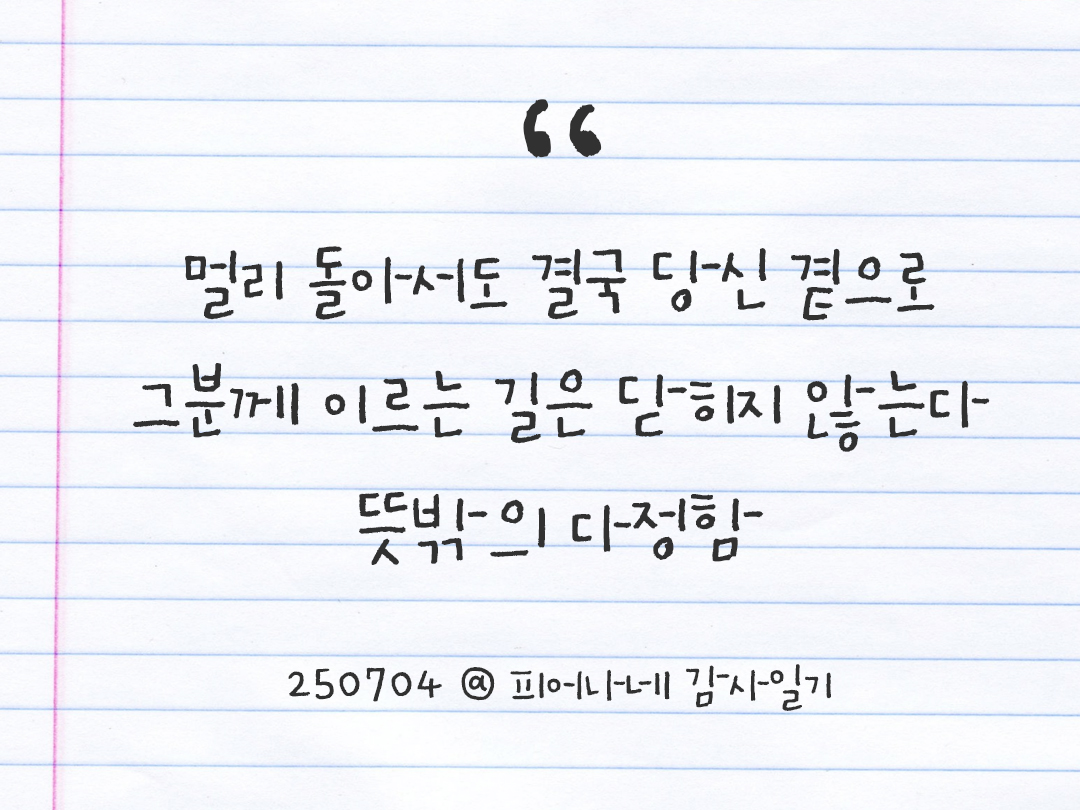 “
멀리 돌아서도 결국 당신 곁으로
그분께 이르는 길은 닫히지 않는다
뜻밖의 다정함
250704 @ 피어나네 감사일기